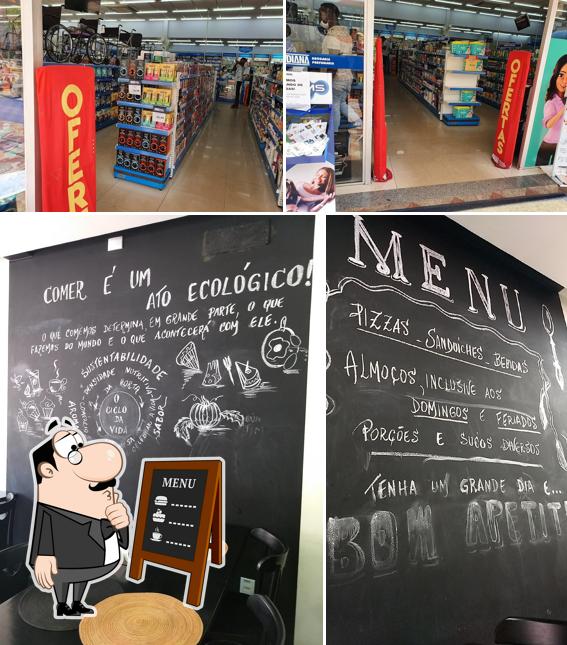 OFER
DIANA
DROGARIA
PERFUMARIA
MS
OFERTAS
COMER É UM
ATO ECOLÓGICO!
O QUE COMEMOS DETERMINA, EM GRANDE PARTE, O QUE
FAZEMOS DO MUNDO E O QUE ACONTECERÁ COM ELE.
SUSTENTABILIDADE
DENSIDADE NUTRITIVA
DA HORTA
SABOR
O CICLO
DA
VIDA
MENU
MENU
PIZZAS - SANDUÍCHES - BEBIDAS
ALMOÇOS, INCLUSIVE AOS
DOMINGOS E FERIADOS
PORÇÕES E SUCOS DIVERSOS
TENHA UM GRANDE DIA E...
BOM APETIT